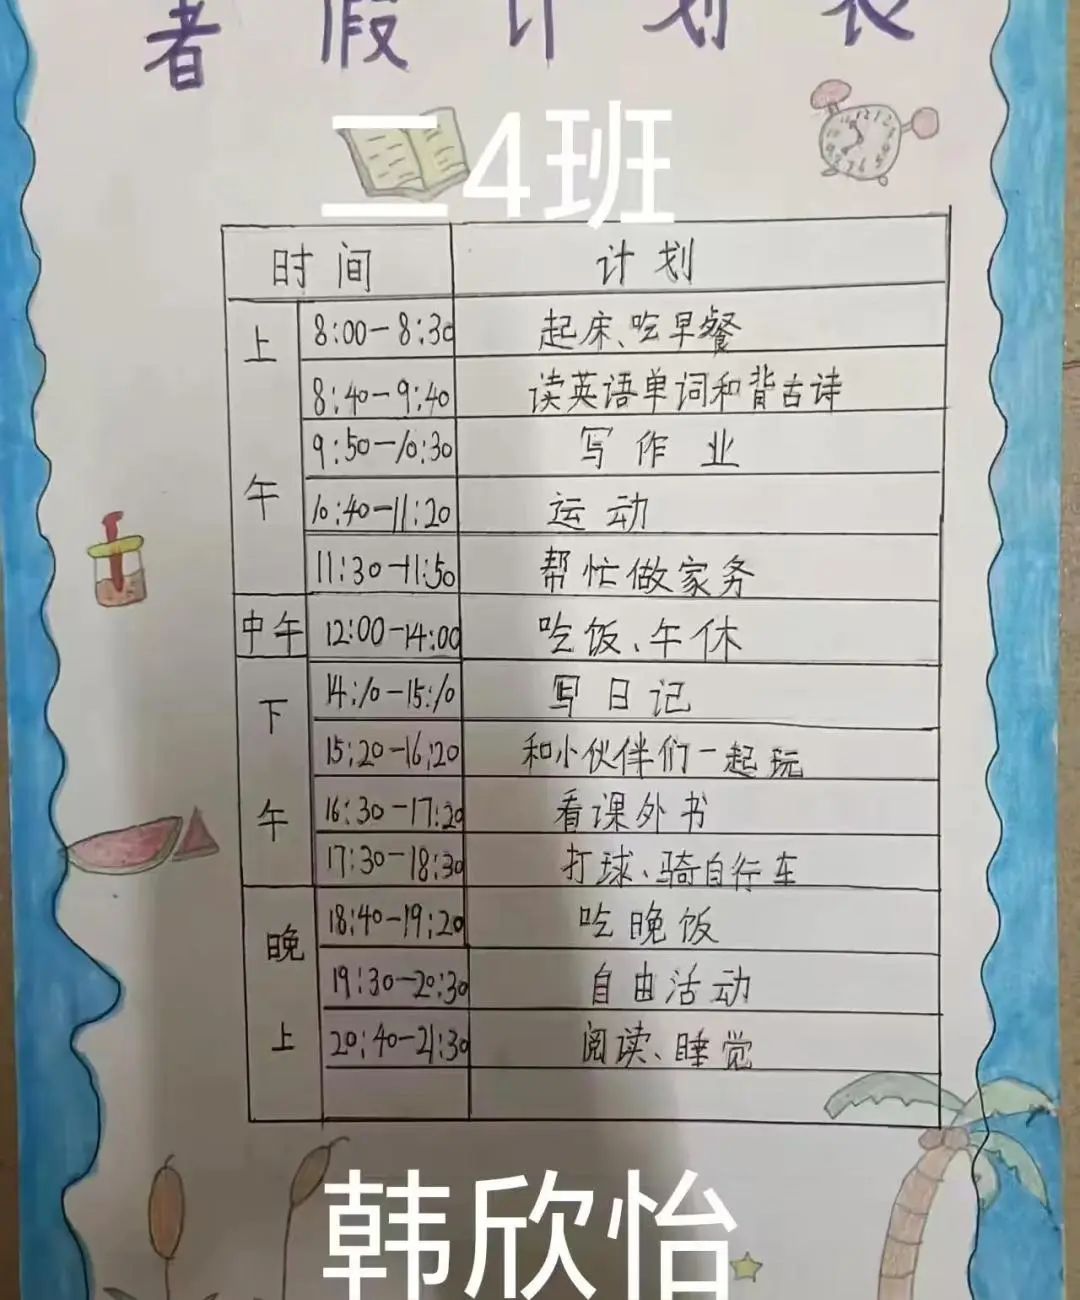 暑假计划表
二4班
时间 计划
上午
8:00-8:30 起床、吃早餐
8:40-9:40 读英语单词和背古诗
9:50-10:30 写作业
10:40-11:20 运动
11:30-11:50 帮忙做家务
中午 12:00-14:00 吃饭、午休
下午
14:10-15:10 写日记
15:20-16:20 和小伙伴们一起玩
16:30-17:20 看课外书
17:30-18:30 打球、骑自行车
晚上
18:40-19:20 吃晚饭
19:30-20:30 自由活动
20:40-21:30 阅读、睡觉
韩欣怡